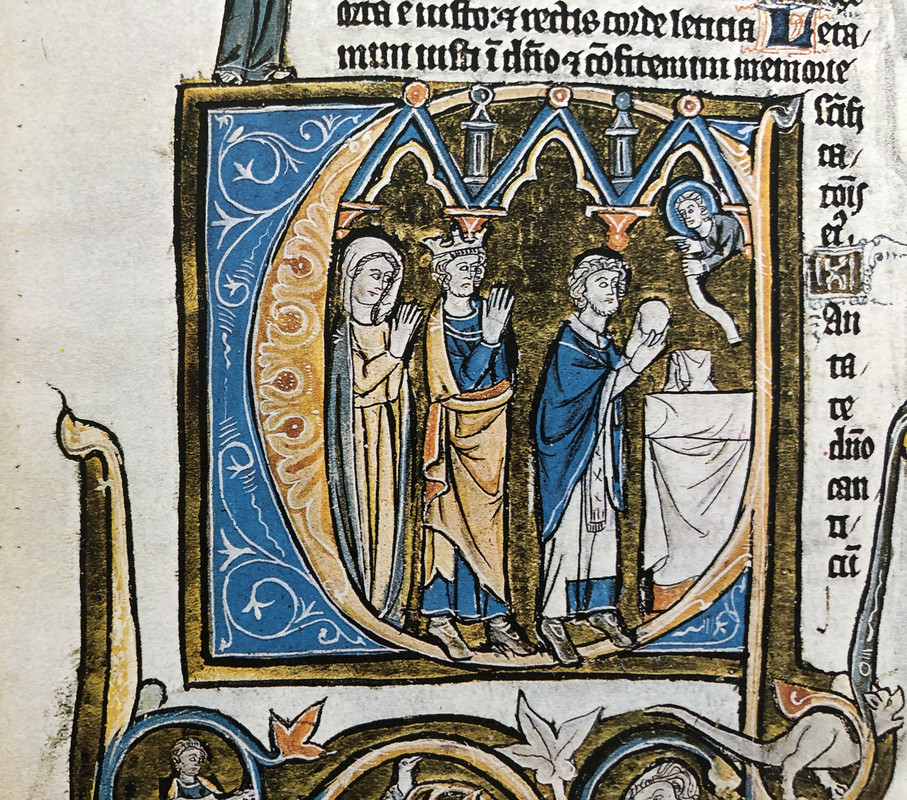 orta ē iusto: ⁊ rectis corde leticia Leta/
mini iusti ī dn̄o ⁊ cōfitemini memorie
sc̄ifi
ca/
cōis
eꝰ.
CAn
ta/
te
dn̄o
can
ti/
cū